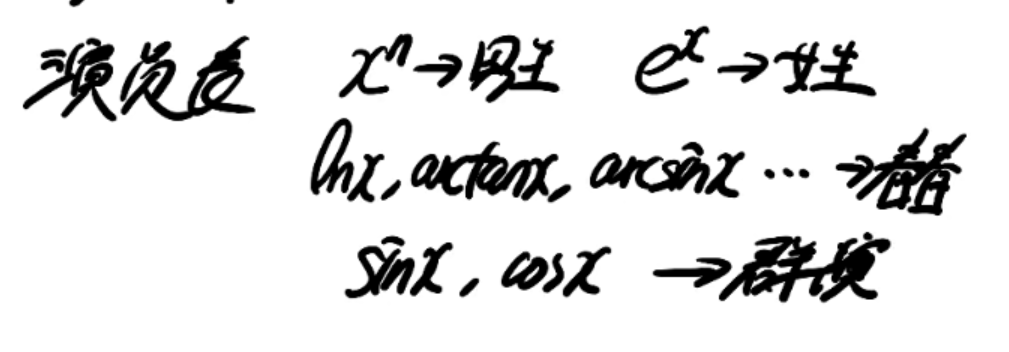 演员表 xⁿ→男生 eˣ→女生
lnx, arctanx, arcsinx ... →春春
sinx, cosx →群演